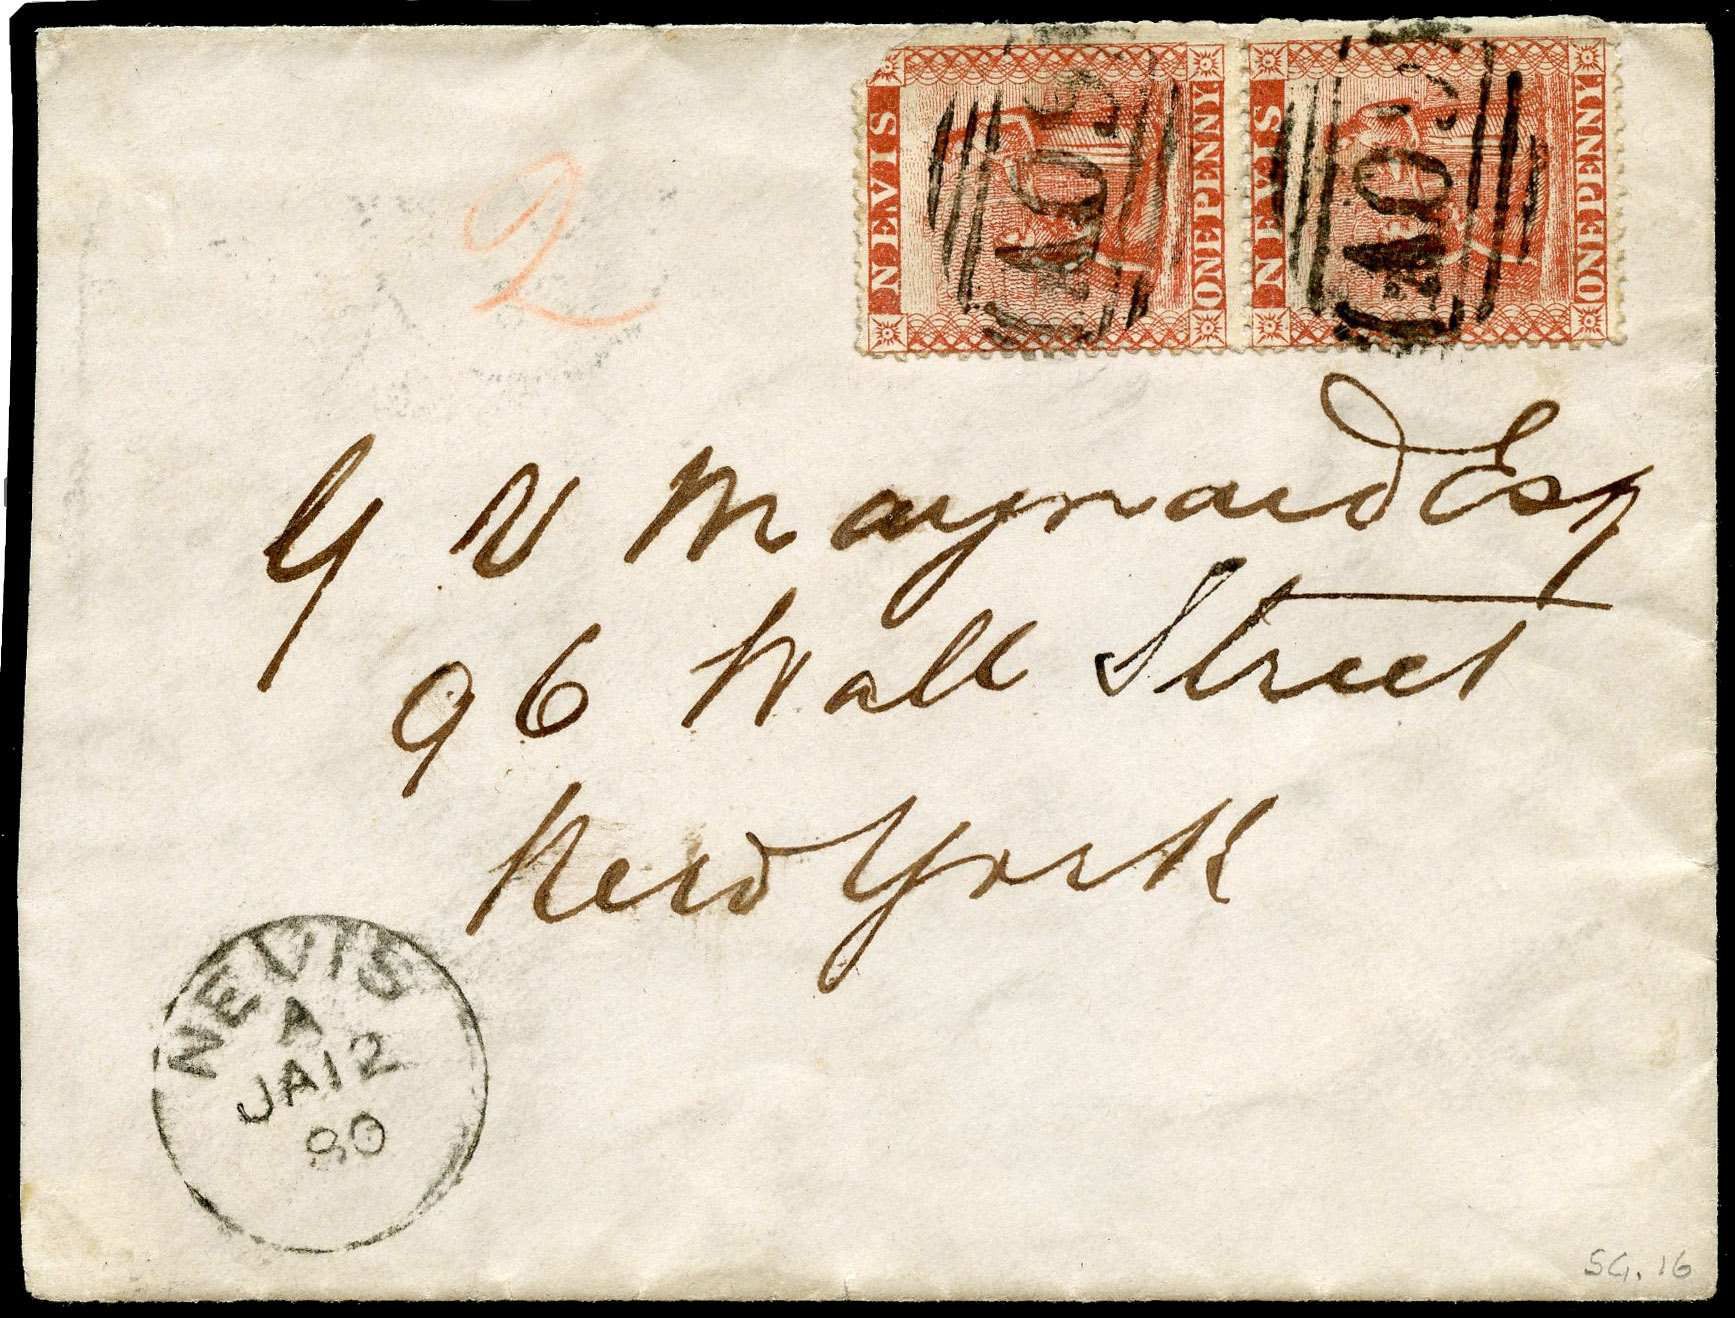 2
NEVIS
ONE PENNY
A09
NEVIS
ONE PENNY
A09
G V Maynard Esq
96 Wall Street
New York
NEVIS
A
JA 12
80
SG. 16